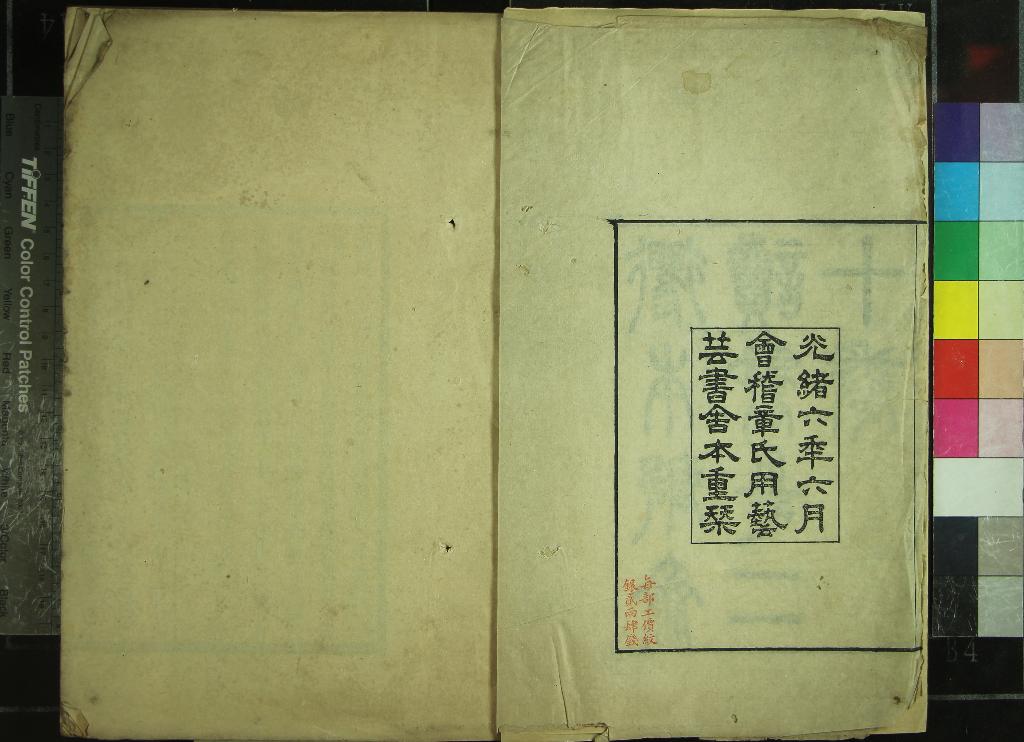 光緒六年六月
會稽章氏用藝
芸書舍本重栞
每部工價紋
銀貳兩肆錢
TIFFEN Color Control Patches
Blue
Cyan
Green
Yellow
Red
Magenta
White
3/Color
Black
Centimetres
B4